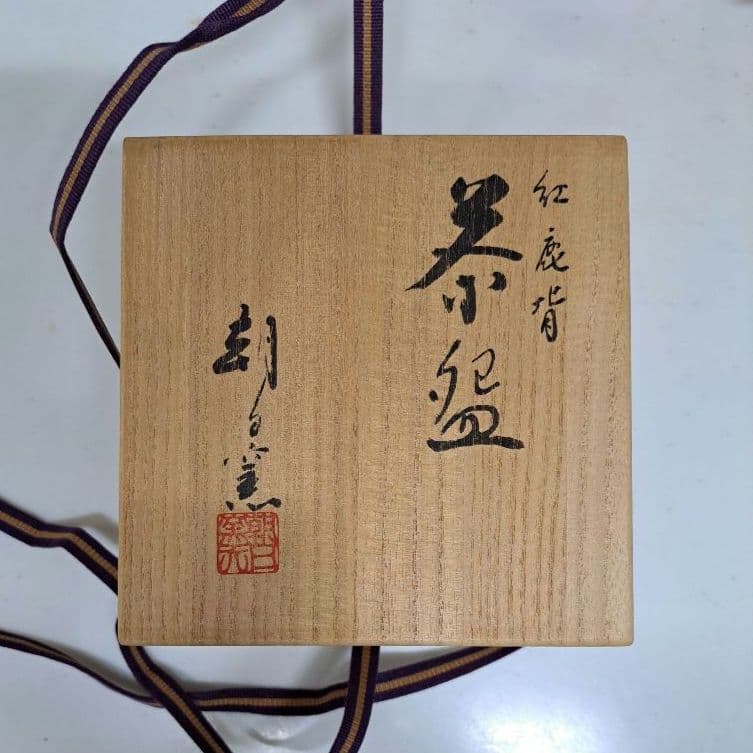 紅鹿背
茶盌
朝日窯